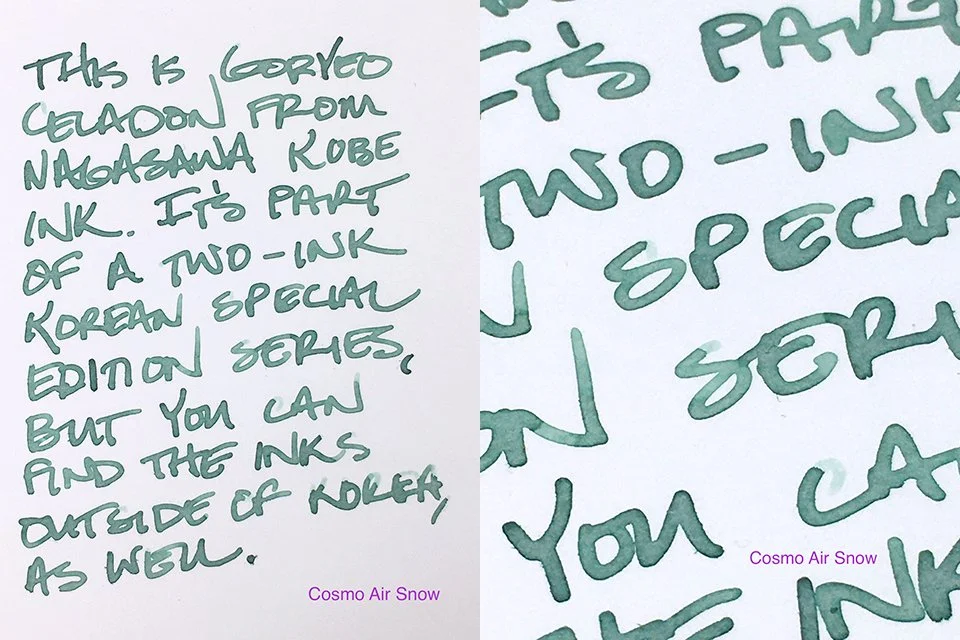 THIS IS GORYEO
CELADON FROM
NAGASAWA KOBE
INK. IT'S PART
OF A TWO-INK
KOREAN SPECIAL
EDITION SERIES,
BUT YOU CAN
FIND THE INKS
OUTSIDE OF KOREA,
AS WELL.
Cosmo Air Snow
IT'S PART
TWO-INK
SPECIA
ON SERI
YOU CA
Cosmo Air Snow
THE INK